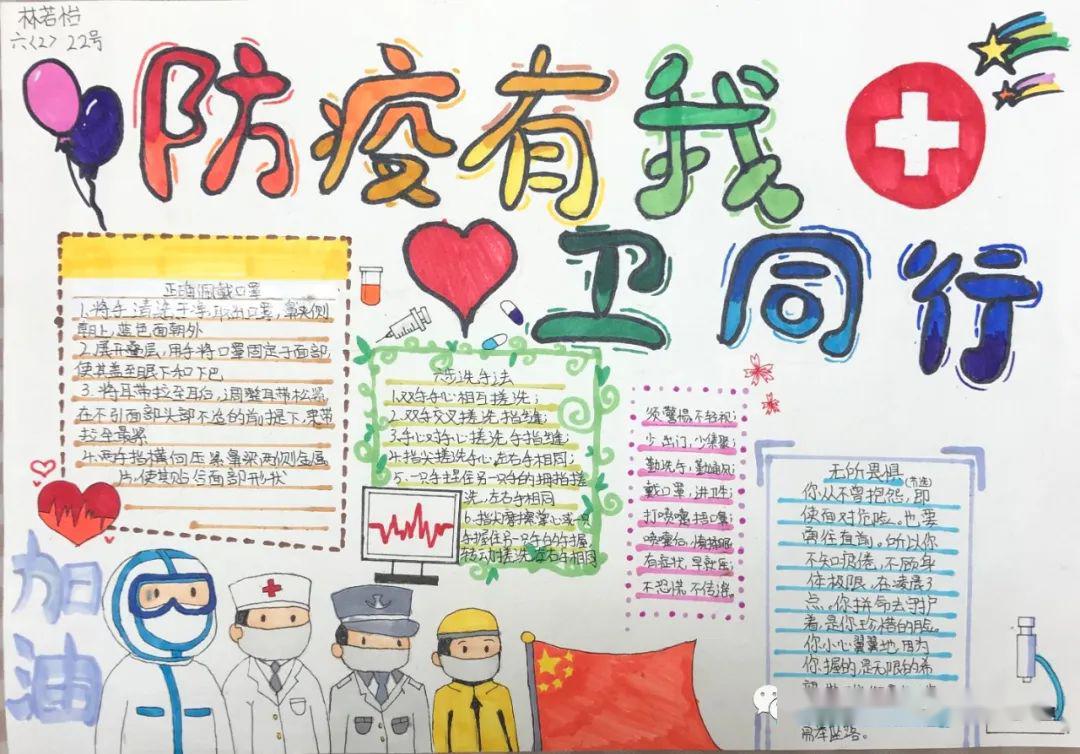 林若怡
六(2) 22号
防疫有我
卫同行
正确佩戴口罩
1.将手清洗干净,取出口罩,鼻夹侧
朝上,蓝色面朝外
2.展开叠层,用手将口罩固定于面部,
使其盖至眼下和下巴
3.将耳带拉至耳后,调整耳带松紧
在不引面部头部不适的前提下,耳带
拉至最紧
4.两手指横向压紧鼻梁两侧金属
片,使其贴合面部形状
六步洗手法
1.双手手心相互搓洗;
2.双手交叉搓洗指缝;
3.手心对手心搓洗手指缝;
4.指尖搓洗手心,左右手相同;
5.一只手握住另一只手的拇指搓
洗,左右手相同
6.指尖摩擦掌心或一只
手握住另一只手的手腕,
转动搓洗,左右手相同
须警惕,不轻视;
少出门,少集聚;
勤洗手,勤通风;
戴口罩,讲卫生;
打喷嚏,捂口鼻;
喷嚏后,慎揉眼
有症状,早就医;
不恐慌,不传谣。
无所畏惧(节选)
你从不曾抱怨,即
使面对危险。也要
勇往直前。所以你
不知疲倦,不顾身
体极限,在凌晨3
点。你拼命去守护
着,是你珍惜的脸。
你小心翼翼地,因为
你握的,是无限的希
加油